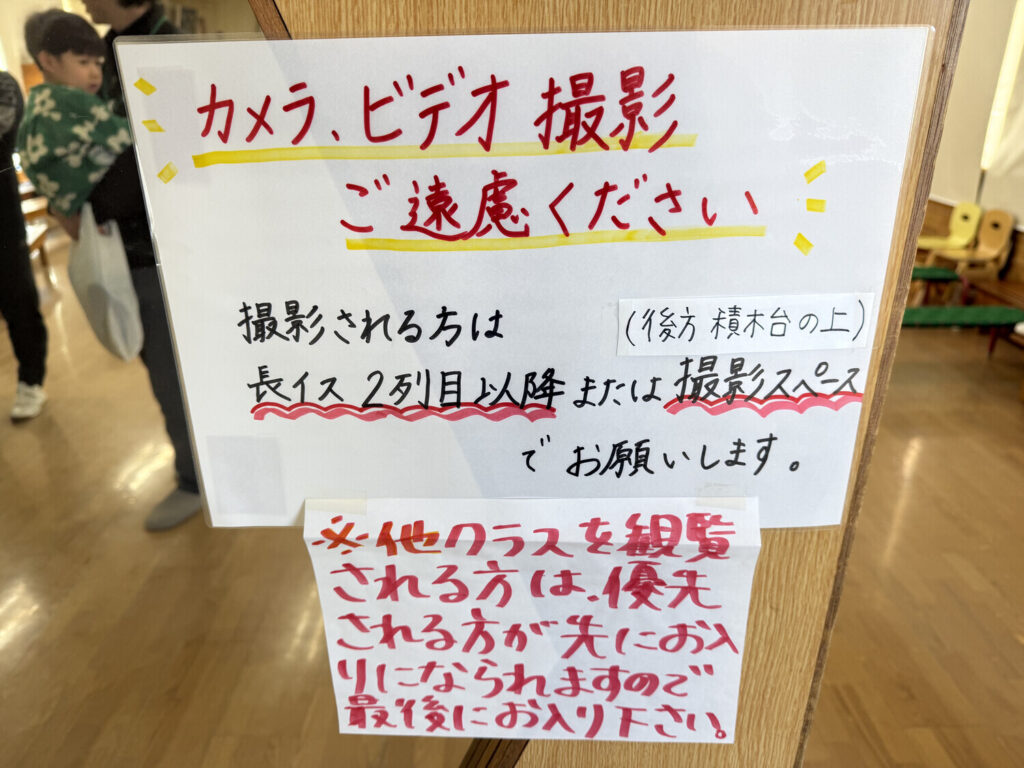 カメラ、ビデオ 撮影
ご遠慮ください
撮影される方は
(後方 積木台の上)
長イス 2列目以降 または 撮影スペース
で お願いします。
※他クラスを観覧
される方は、優先
される方が先にお入
りになられますので
最後にお入り下さい。